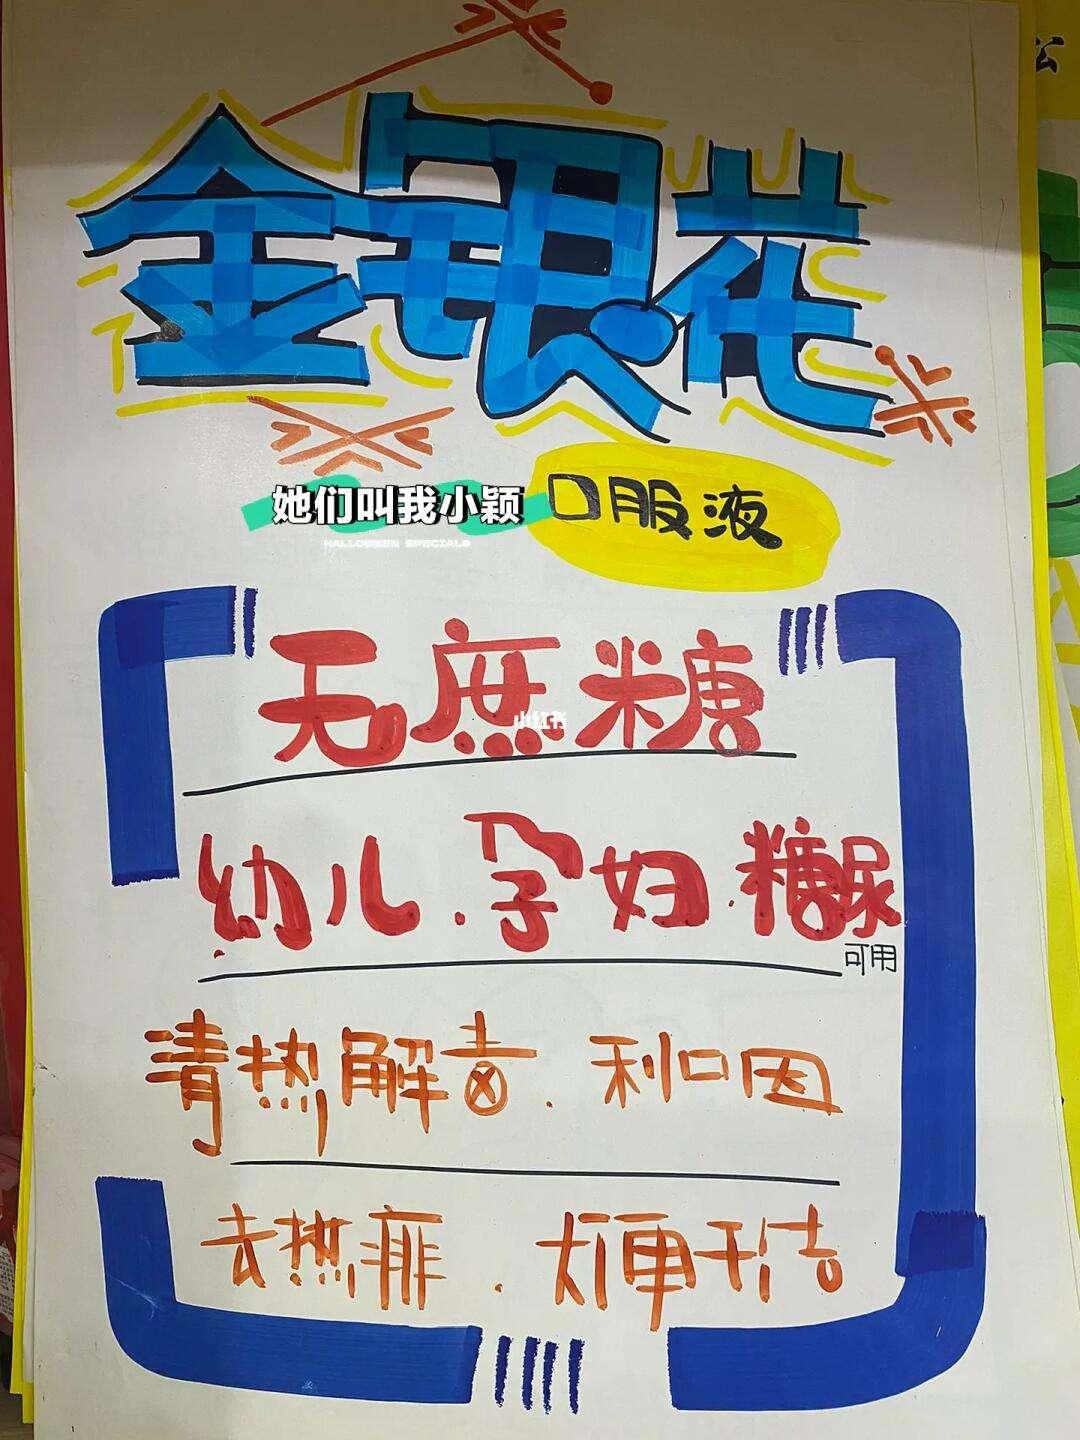 公
金银花
她们叫我小颖
HALLOWEEN SPECIALS
口服液
无庶糖
小红书
幼儿.孕妇.糖尿
可用
清热解毒.利口因
去热痱.大便干结